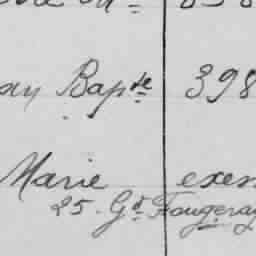 an Bapte 398
Marie exem
25. Gd Fougeray